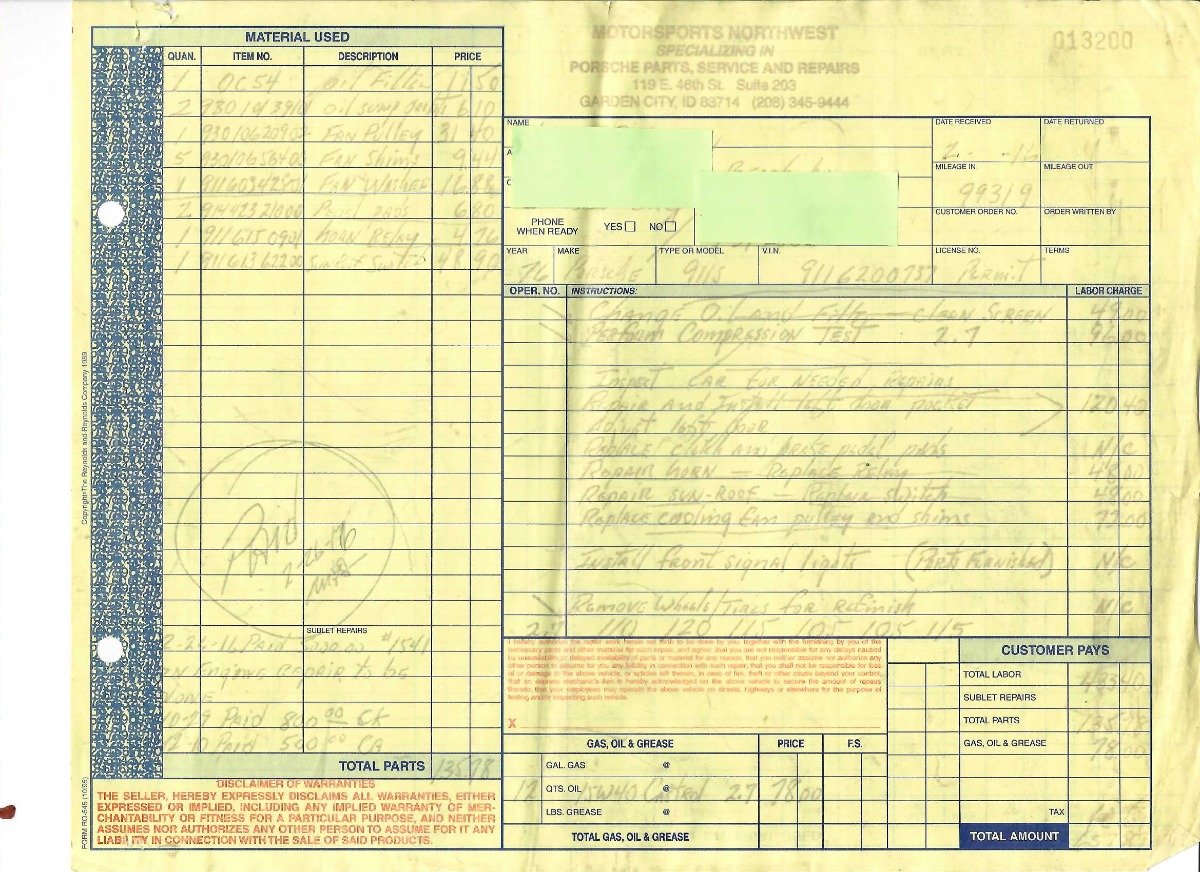 MOTORSPORTS NORTHWEST
SPECIALIZING IN
PORSCHE PARTS, SERVICE AND REPAIRS
119 E. 46th St. Suite 203
GARDEN CITY, ID 83714 (208) 345-9444
013200
MATERIAL USED
QUAN. ITEM NO. DESCRIPTION PRICE
1 OC54 Oil Filter 11.50
2 Oil sump 6.10
1 Fan Pulley 31.40
5 Fan Shims 9.44
1 Fan Washer 16.88
2 91442321000 Pedal pads 6.80
1 Horn Relay 4.76
1 Sunroof Switch 48.90
Paid
SUBLET REPAIRS
2-26-16 Paid #1541
on Engine Repair to be
done
10-29 Paid 800.00 CK
12-10 Paid 500.00 CA
TOTAL PARTS 135.78
DISCLAIMER OF WARRANTIES
THE SELLER, HEREBY EXPRESSLY DISCLAIMS ALL WARRANTIES, EITHER
EXPRESSED OR IMPLIED, INCLUDING ANY IMPLIED WARRANTY OF MER-
CHANTABILITY OR FITNESS FOR A PARTICULAR PURPOSE, AND NEITHER
ASSUMES NOR AUTHORIZES ANY OTHER PERSON TO ASSUME FOR IT ANY
LIABILITY IN CONNECTION WITH THE SALE OF SAID PRODUCTS.
Copyright The Reynolds and Reynolds Company 1989
FORM RO-545 (10/95)
NAME
DATE RECEIVED DATE RETURNED
MILEAGE IN MILEAGE OUT
99319
CUSTOMER ORDER NO. ORDER WRITTEN BY
PHONE
WHEN READY YES NO
YEAR MAKE TYPE OR MODEL V.I.N. LICENSE NO. TERMS
76 Porsche 911S 9116200737 Permit
OPER. NO. INSTRUCTIONS: LABOR CHARGE
Change Oil and Filter - Clean Screen 48.00
Perform Compression Test 2.7 96.00
Inspect car for needed repairs
Repair and Install left door pocket 120.40
Adjust left door
Replace clutch and brake pedal pads N/C
Repair horn - Replace Relay 48.00
Repair sun-roof - Replace switch 48.00
Replace cooling fan pulley and shims 72.00
Install front signal lights (Parts Furnished) N/C
Remove Wheels/Tires for Refinish N/C
2.7 110 120 115 105 105 115
I hereby authorize the repair work herein set forth to be done by you, together with the furnishing by you of the
necessary parts and other material for such repair, and agree: that you are not responsible for any delays caused
by unavailability or delayed availability of parts or material for any reason; that you neither assume nor authorize any
other person to assume for you any liability in connection with such repair; that you shall not be responsible for loss
of or damage to the above vehicle, or articles left therein, in case of fire, theft or other cause beyond your control;
that an express mechanic's lien is hereby acknowledged on the above vehicle to secure the amount of repairs
thereto; that your employees may operate the above vehicle on streets, highways or elsewhere for the purpose of
testing and/or inspecting such vehicle.
X
CUSTOMER PAYS
TOTAL LABOR
SUBLET REPAIRS
TOTAL PARTS 135.78
GAS, OIL & GREASE 78.00
TAX
TOTAL AMOUNT
GAS, OIL & GREASE PRICE F.S.
GAL. GAS @
12 QTS. OIL @ 15W40 Castrol 2.7 78.00
LBS. GREASE @
TOTAL GAS, OIL & GREASE